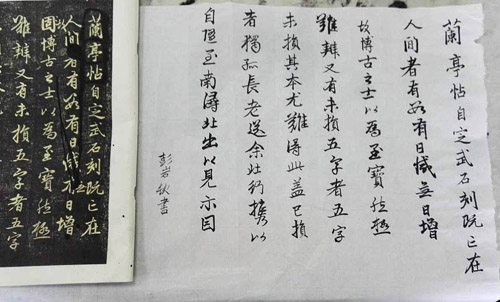 蘭亭帖自定武石刻既亡在
人間者有數有日減無日增
故博古之士以為至寶然極
難辨又有未損五字者五字
未損其本尤難得此蓋已損
者獨孤長老送余北行攜以
自隨至南潯北出以見示因
彭秋書
蘭亭帖自定武石刻既亡在
人間者有數有日減亦日增
固博古之士以為至寶然極
難辨又有未損五字者五字